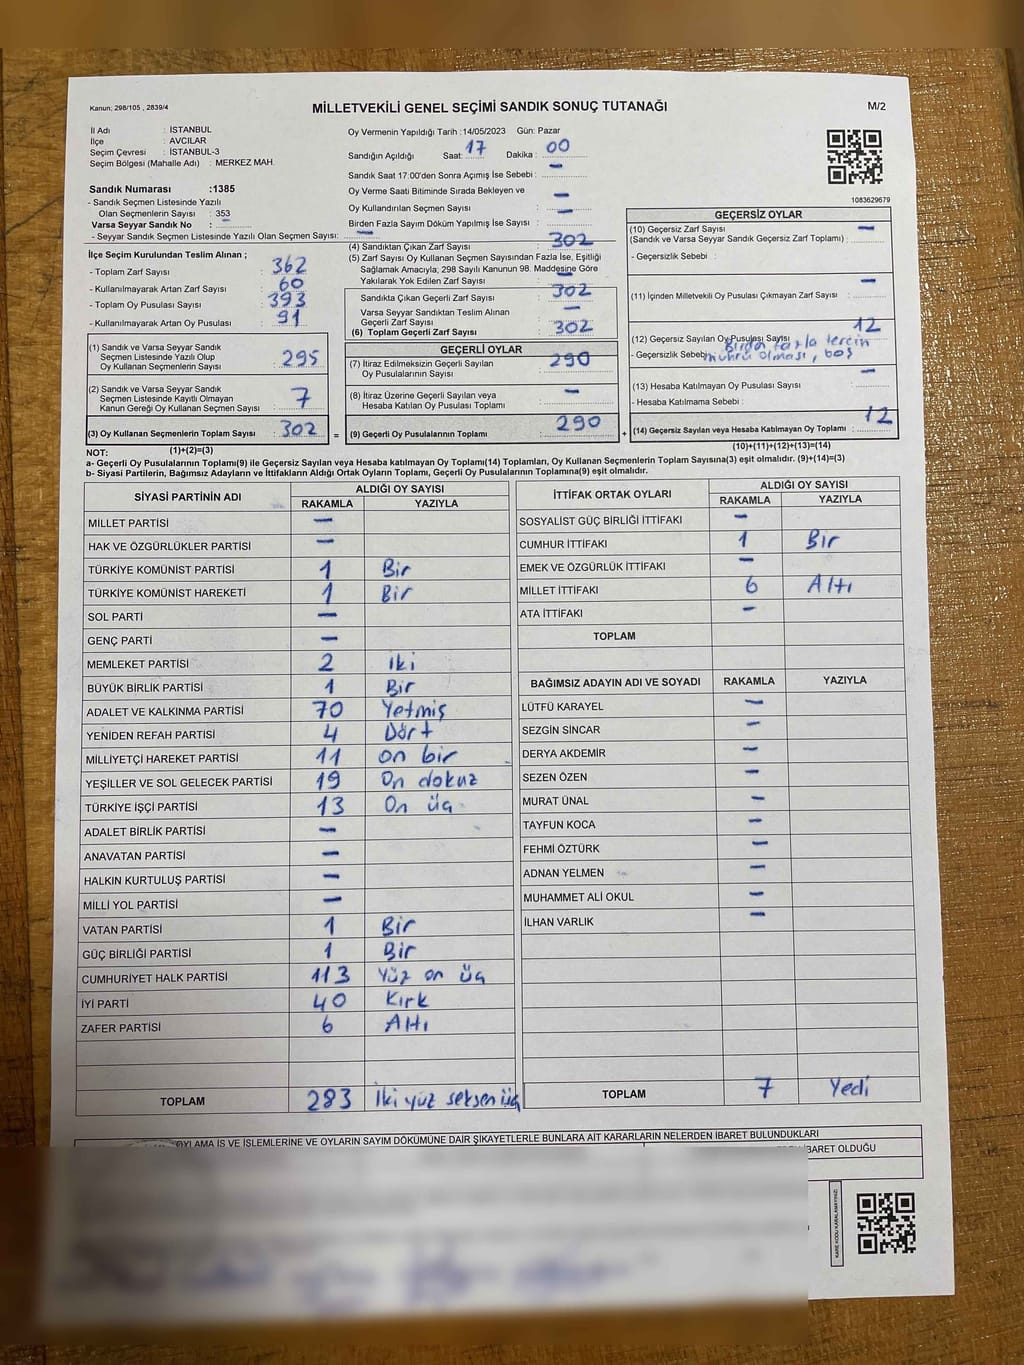 Kanun; 298/105 , 2839/4
MİLLETVEKİLİ GENEL SEÇİMİ SANDIK SONUÇ TUTANAĞI
M/2
İl Adı : İSTANBUL
İlçe : AVCILAR
Seçim Çevresi : İSTANBUL-3
Seçim Bölgesi (Mahalle Adı) : MERKEZ MAH.
Sandık Numarası :1385
- Sandık Seçmen Listesinde Yazılı
Olan Seçmenlerin Sayısı : 353
Varsa Seyyar Sandık No : –
- Seyyar Sandık Seçmen Listesinde Yazılı Olan Seçmen Sayısı: –
İlçe Seçim Kurulundan Teslim Alınan ;
- Toplam Zarf Sayısı : 362
- Kullanılmayarak Artan Zarf Sayısı : 60
- Toplam Oy Pusulası Sayısı : 393
- Kullanılmayarak Artan Oy Pusulası : 91
(1) Sandık ve Varsa Seyyar Sandık
Seçmen Listesinde Yazılı Olup
Oy Kullanan Seçmenlerin Sayısı : 295
(2) Sandık ve Varsa Seyyar Sandık
Seçmen Listesinde Kayıtlı Olmayan
Kanun Gereği Oy Kullanan Seçmen Sayısı : 7
(3) Oy Kullanan Seçmenlerin Toplam Sayısı : 302
(1)+(2)=(3)
Oy Vermenin Yapıldığı Tarih :14/05/2023 Gün: Pazar
Sandığın Açıldığı Saat: 17 Dakika : 00
Sandık Saat 17:00'den Sonra Açımış İse Sebebi : –
Oy Verme Saati Bitiminde Sırada Bekleyen ve
Oy Kullandırılan Seçmen Sayısı : –
Birden Fazla Sayım Döküm Yapılmış İse Sayısı : –
(4) Sandıktan Çıkan Zarf Sayısı : 302
(5) Zarf Sayısı Oy Kullanan Seçmen Sayısından Fazla İse, Eşitliği
Sağlamak Amacıyla, 298 Sayılı Kanunun 98. Maddesine Göre
Yakılarak Yok Edilen Zarf Sayısı : –
Sandıkta Çıkan Geçerli Zarf Sayısı : 302
Varsa Seyyar Sandıktan Teslim Alınan
Geçerli Zarf Sayısı : –
(6) Toplam Geçerli Zarf Sayısı : 302
GEÇERLİ OYLAR
(7) İtiraz Edilmeksizin Geçerli Sayılan
Oy Pusulalarının Sayısı : 290
(8) İtiraz Üzerine Geçerli Sayılan veya
Hesaba Katılan Oy Pusulası Toplamı : –
= (9) Geçerli Oy Pusulalarının Toplamı : 290 +
1083629679
GEÇERSİZ OYLAR
(10) Geçersiz Zarf Sayısı
(Sandık ve Varsa Seyyar Sandık Geçersiz Zarf Toplamı) : –
- Geçersizlik Sebebi :
(11) İçinden Milletvekili Oy Pusulası Çıkmayan Zarf Sayısı : –
(12) Geçersiz Sayılan Oy Pusulası Sayısı : 12
- Geçersizlik Sebebi : Birden fazla tercih
mührü olması, boş
(13) Hesaba Katılmayan Oy Pusulası Sayısı : –
- Hesaba Katılmama Sebebi :
(14) Geçersiz Sayılan veya Hesaba Katılmayan Oy Toplamı : 12
(10)+(11)+(12)+(13)=(14)
NOT:
a- Geçerli Oy Pusulalarının Toplamı(9) ile Geçersiz Sayılan veya Hesaba katılmayan Oy Toplamı(14) Toplamları, Oy Kullanan Seçmenlerin Toplam Sayısına(3) eşit olmalıdır. (9)+(14)=(3)
b- Siyasi Partilerin, Bağımsız Adayların ve İttifakların Aldığı Ortak Oyların Toplamı, Geçerli Oy Pusulalarının Toplamına(9) eşit olmalıdır.
SİYASİ PARTİNİN ADI ALDIĞI OY SAYISI
RAKAMLA YAZIYLA
MİLLET PARTİSİ –
HAK VE ÖZGÜRLÜKLER PARTİSİ –
TÜRKİYE KOMÜNİST PARTİSİ 1 Bir
TÜRKİYE KOMÜNİST HAREKETİ 1 Bir
SOL PARTİ –
GENÇ PARTİ –
MEMLEKET PARTİSİ 2 iki
BÜYÜK BİRLİK PARTİSİ 1 Bir
ADALET VE KALKINMA PARTİSİ 70 Yetmiş
YENİDEN REFAH PARTİSİ 4 Dört
MİLLİYETÇİ HAREKET PARTİSİ 11 on bir
YEŞİLLER VE SOL GELECEK PARTİSİ 19 On dokuz
TÜRKİYE İŞÇİ PARTİSİ 13 On üç
ADALET BİRLİK PARTİSİ –
ANAVATAN PARTİSİ –
HALKIN KURTULUŞ PARTİSİ –
MİLLİ YOL PARTİSİ –
VATAN PARTİSİ 1 Bir
GÜÇ BİRLİĞİ PARTİSİ 1 Bir
CUMHURİYET HALK PARTİSİ 113 Yüz on üç
İYİ PARTİ 40 Kırk
ZAFER PARTİSİ 6 Altı
TOPLAM 283 İki yüz seksen üç
İTTİFAK ORTAK OYLARI ALDIĞI OY SAYISI
RAKAMLA YAZIYLA
SOSYALİST GÜÇ BİRLİĞİ İTTİFAKI –
CUMHUR İTTİFAKI 1 Bir
EMEK VE ÖZGÜRLÜK İTTİFAKI –
MİLLET İTTİFAKI 6 Altı
ATA İTTİFAKI –
TOPLAM
BAĞIMSIZ ADAYIN ADI VE SOYADI RAKAMLA YAZIYLA
LÜTFÜ KARAYEL –
SEZGİN SİNCAR –
DERYA AKDEMİR –
SEZEN ÖZEN –
MURAT ÜNAL –
TAYFUN KOCA –
FEHMİ ÖZTÜRK –
ADNAN YELMEN –
MUHAMMET ALİ OKUL –
İLHAN VARLIK –
TOPLAM 7 Yedi
OYLAMA İŞ VE İŞLEMLERİNE VE OYLARIN SAYIM DÖKÜMÜNE DAİR ŞİKAYETLERLE BUNLARA AİT KARARLARIN NELERDEN İBARET BULUNDUKLARI
İBARET OLDUĞU
KARE KODU KARALAMAYINIZ!